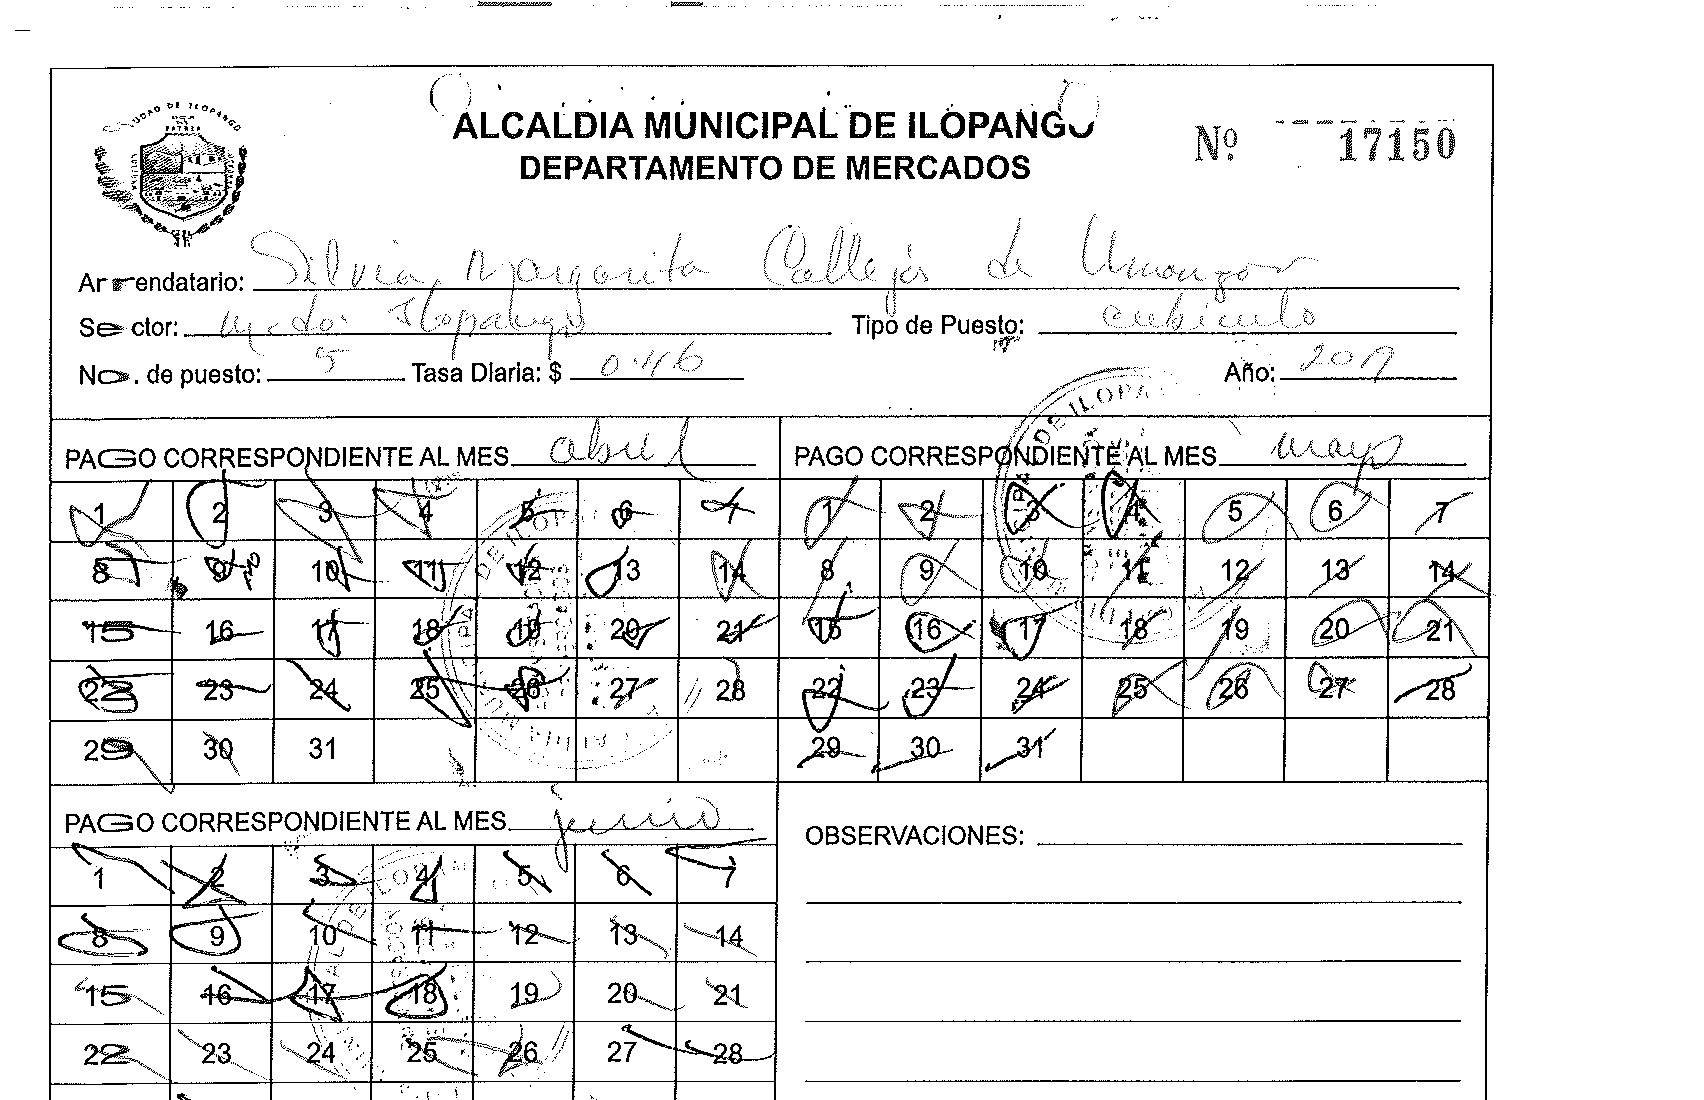 CIUDAD DE ILOPANGO
ALCALDIA MUNICIPAL DE ILOPANGO
DEPARTAMENTO DE MERCADOS
Nº 17150
Arrendatario: Silvia Margarita Callejas de Umanzor
Sector: Mcdo. Ilopango Tipo de Puesto: cubiculo
No. de puesto: 5 Tasa Diaria: $ 0.46 Año: 2017
PAGO CORRESPONDIENTE AL MES abril PAGO CORRESPONDIENTE AL MES mayo
1 2 3 4 5 6 7 1 2 3 4 5 6 7
8 9 10 11 12 13 14 8 9 10 11 12 13 14
15 16 17 18 19 20 21 15 16 17 18 19 20 21
22 23 24 25 26 27 28 22 23 24 25 26 27 28
29 30 31 29 30 31
PAGO CORRESPONDIENTE AL MES junio OBSERVACIONES:
1 2 3 4 5 6 7
8 9 10 11 12 13 14
15 16 17 18 19 20 21
22 23 24 25 26 27 28